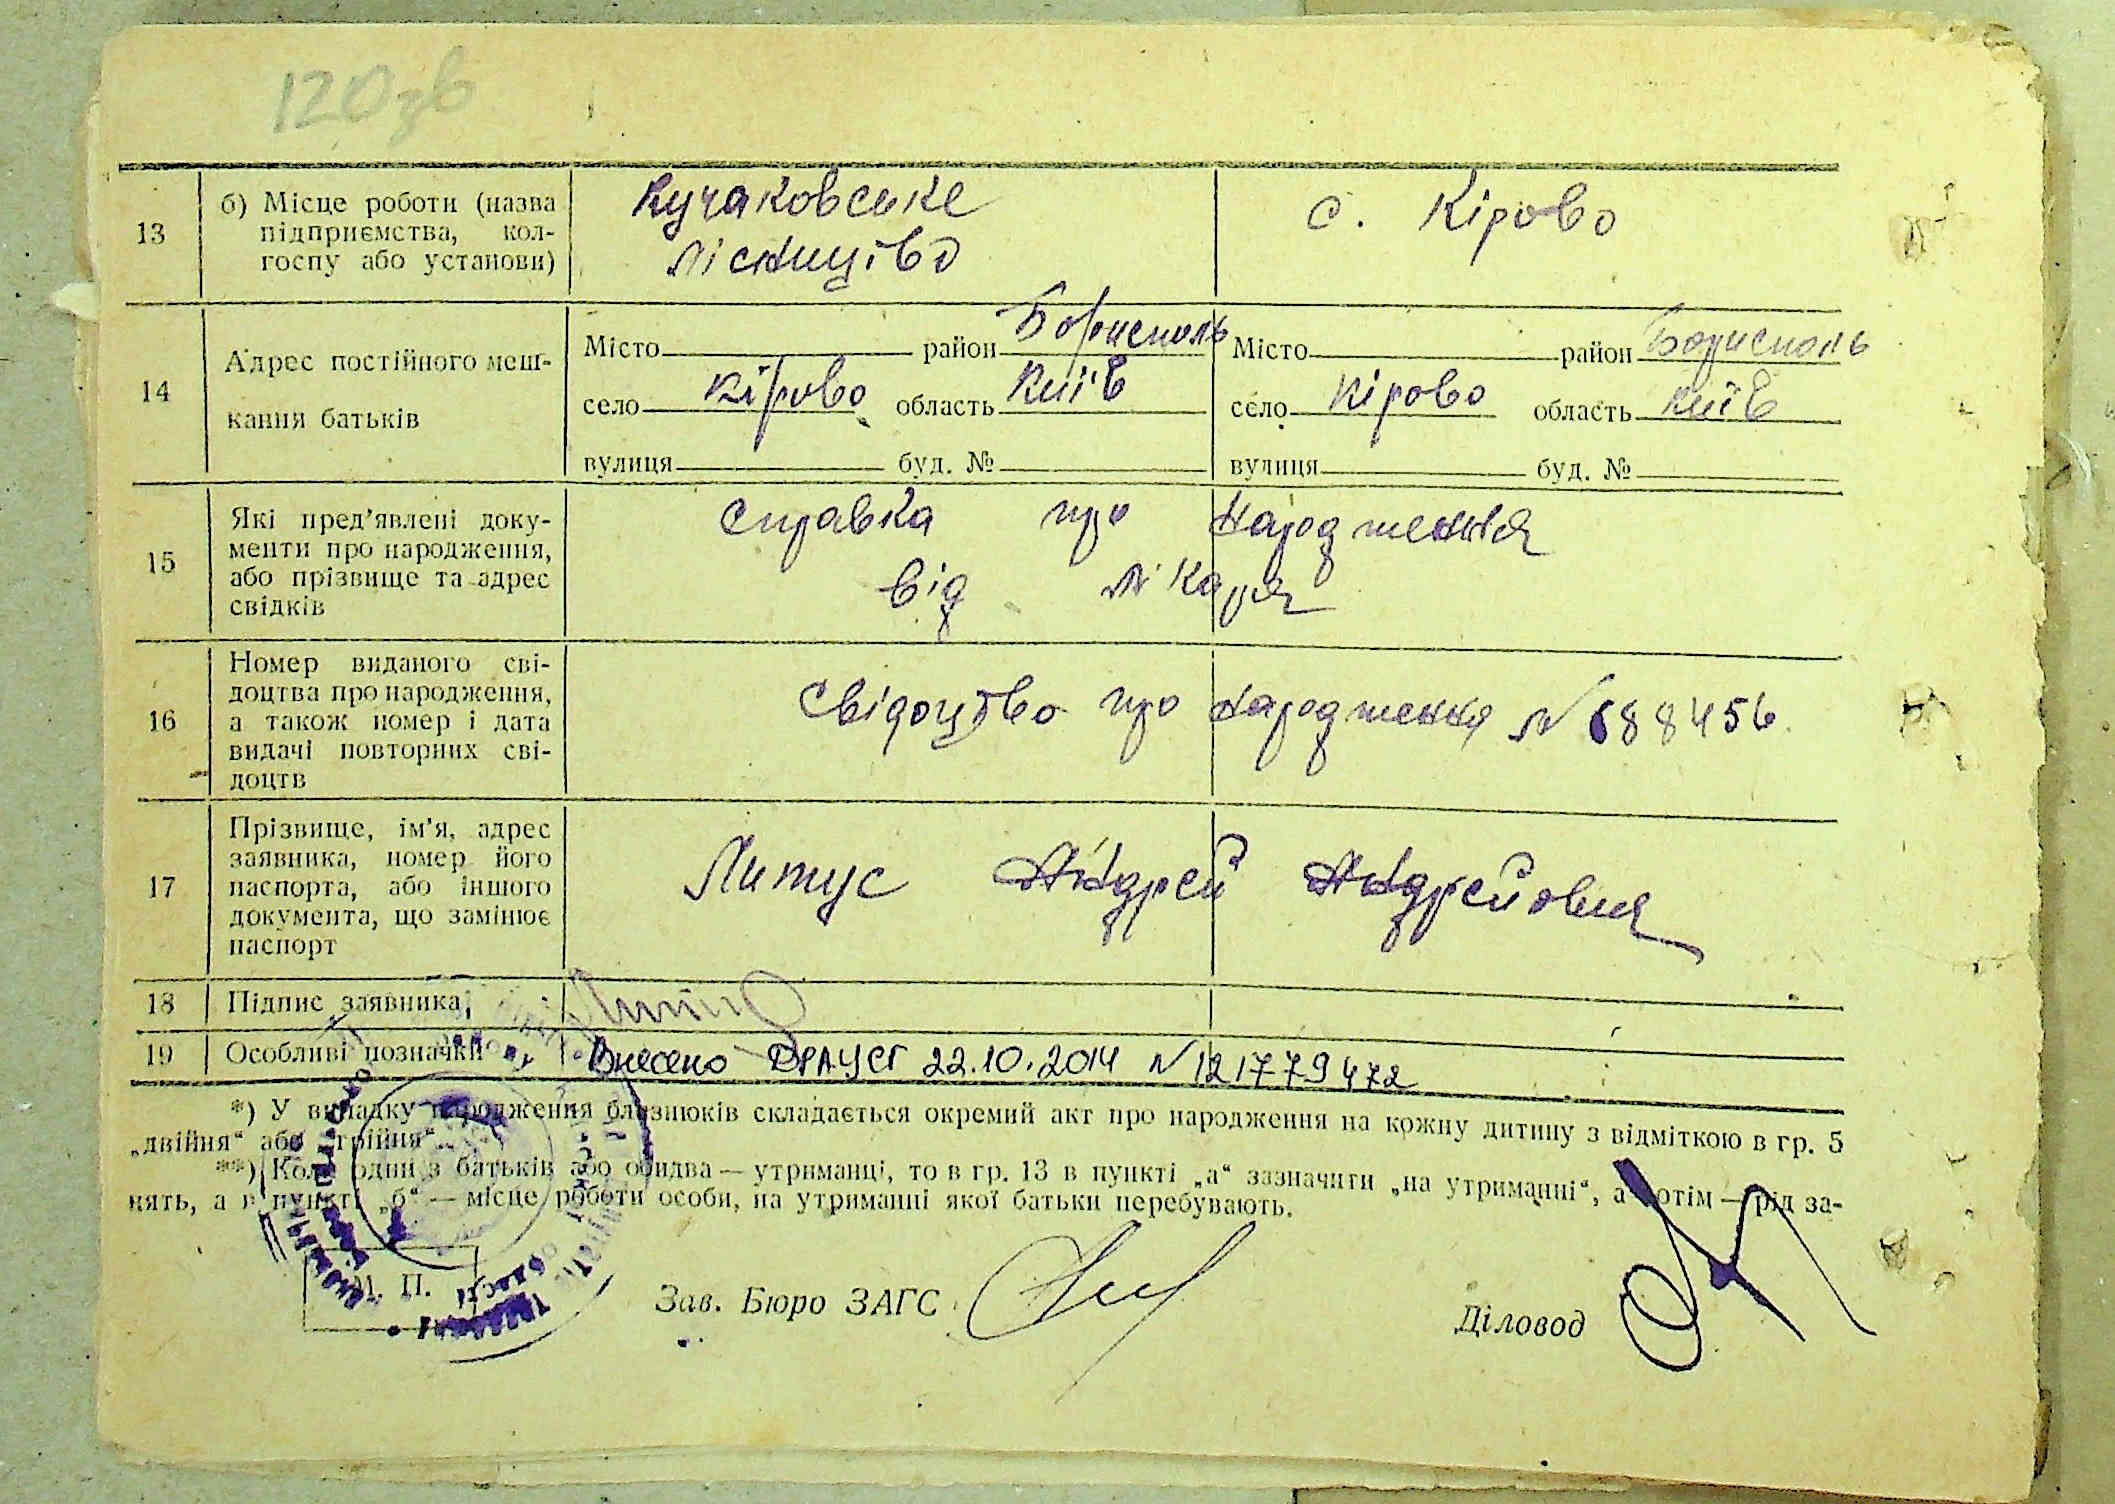 120зв
13
б) Місце роботи (назва
підприємства, кол-
госпу або установи)
Кучаковське
лісництво
с. Кірово
14
Адрес постійного меш-
кання батьків
Місто район Бориспіль
село Кірово область Київ
вулиця буд. №
Місто район Бориспіль
село Кірово область Київ
вулиця буд. №
15
Які пред'явлені доку-
менти про народження,
або прізвище та адрес
свідків
справка про народження
від лікаря
16
Номер виданого сві-
доцтва про народження,
а також номер і дата
видачі повторних сві-
доцтв
Свідоцтво про народження № 688456
17
Прізвище, ім'я, адрес
заявника, номер його
паспорта, або іншого
документа, що замінює
паспорт
Литус Андрей Андрейович
18
Підпис заявника
19
Особливі позначки
Внесено ДРАЦСГ 22.10.2014 №121779472
*) У випадку народження близнюків складається окремий акт про народження на кожну дитину з відміткою в гр. 5
„двійня“ або „трійня“.
**) Коли один з батьків або обидва — утриманці, то в гр. 13 в пункті „а“ зазначити „на утриманні“, а потім — рід за-
нять, а в пункті „б“ — місце роботи особи, на утриманні якої батьки перебувають.
М. П.
Зав. Бюро ЗАГС
Діловод